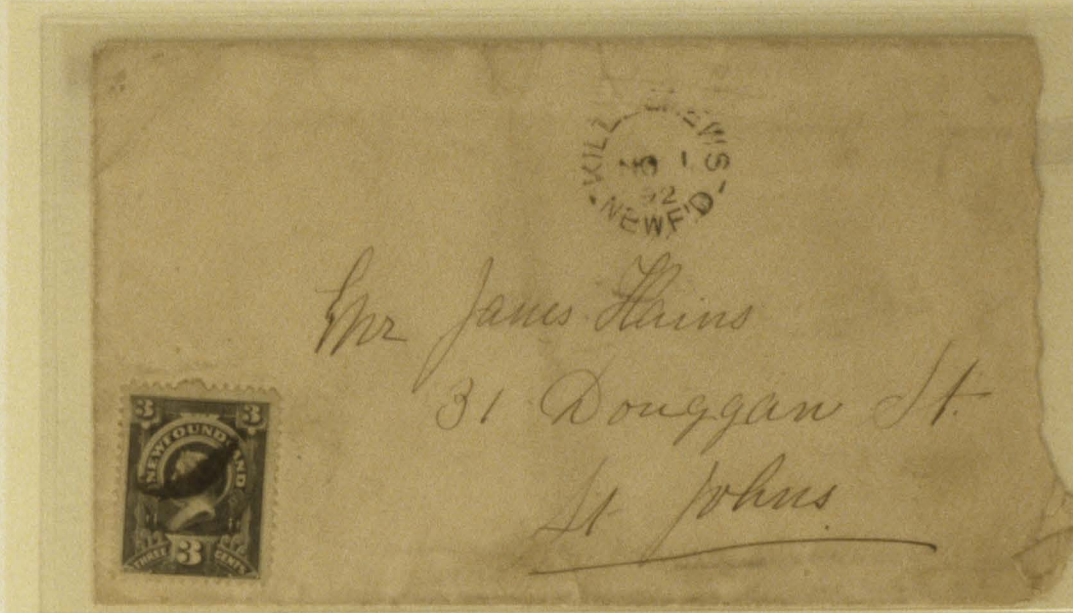 KILL CREWS
5
92
NEWF'D
Mr James Hains
31 Douggan St.
St Johns
3 3
NEWFOUNDLAND
THREE 3 CENTS